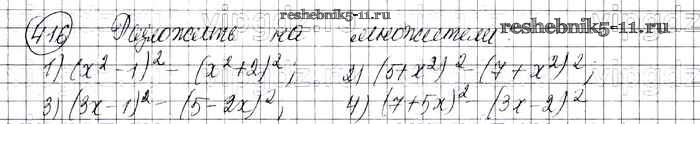 reshebnik5-11.ru
416 Разложить на множители
1) (x² - 1)² - (x² + 2)²; 2) (5 + x²)² - (7 + x²)²;
3) (3x - 1)² - (5 - 2x)²; 4) (7 + 5x)² - (3x - 2)²
reshebnik5-11.ru